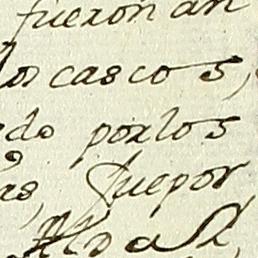 fueron an
los cascos,
do por los
as, fue por